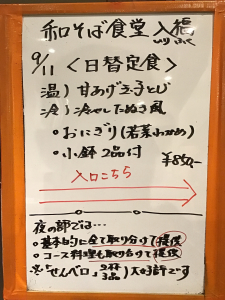 和そば食堂 入福
いりふく
9/11 <日替定食>
温）甘あげ玉子とじ
冷）冷やしたぬき風
・おにぎり(若菜わかめ)
・小鉢 2品付
¥850-
入口こちら
夜の部では…
・基本的に全て取り分けて提供
・コース料理も取り分けて提供
※「せんべロ」2杯 3品 大好評です